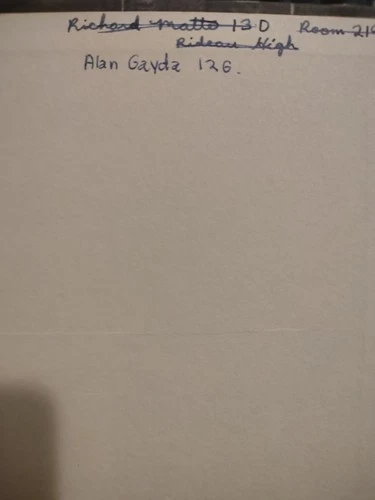 Richard Matto 13D Room 21
Rideau High
Alan Gayda 12G.